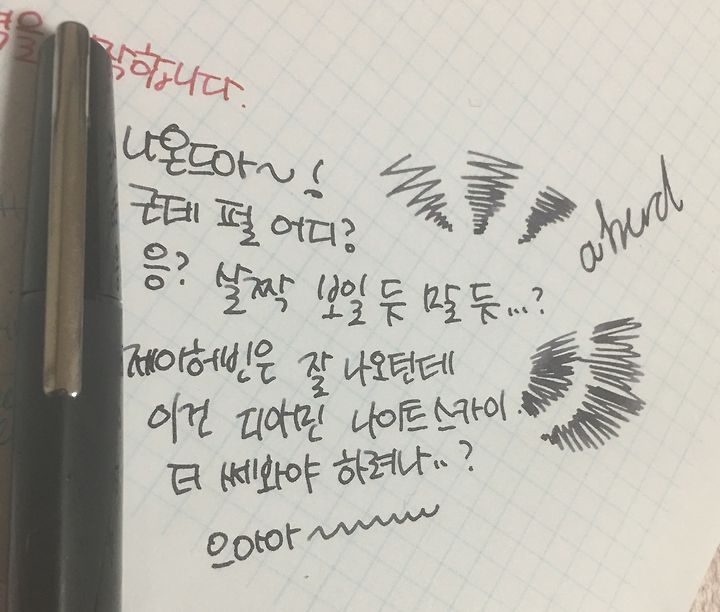 작합니다.
나온드아~!
군데 펄 어디?
응? 살짝 보일 듯 말 듯...?
제이허빈은 잘 나오턴데
이건 디아민 나이트 스카이.
더 쎄와야 하려나..?
으아아~